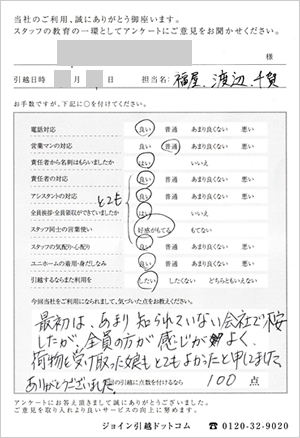 当社のご利用、誠にありがとう御座います。
スタッフの教育の一環としてアンケートにご意見をお聞かせください。
様
引越日時 月 日 担当名: 福屋、渡辺、千賀
お手数ですが、下記に○を付けてください。
電話対応 良い 普通 あまり良くない 悪い
営業マンの対応 良い 普通 あまり良くない 悪い
責任者から名刺はもらいましたか はい いいえ
責任者の対応 良い 普通 あまり良くない 悪い
アシスタントの対応 とても 良い 普通 あまり良くない 悪い
全員挨拶・全員領収ができていましたか はい いいえ
スタッフ同士の言葉使い 好感がもてる もてない
スタッフの気配り・心配り 良い 普通 あまり良くない 悪い
ユニホームの着用・身だしなみ 良い 普通 あまり良くない 悪い
引越するならまた利用を したい したくない どちらともいえない
今回当社をご利用になられまして、気づいた点をお教えください。
最初は、あまり知られていない会社で不安
でしたが、全員の方が感じがよく、
荷物を受け取った娘もとてもよかったと申してました。
ありがとうございました。
今回の引越に点数を付けるなら 100 点
アンケートにお答え頂きまして誠にありがとうございました。
ご意見を取り入れより良いサービスの向上に努めます。
ジョイン引越ドットコム 0120-32-9020